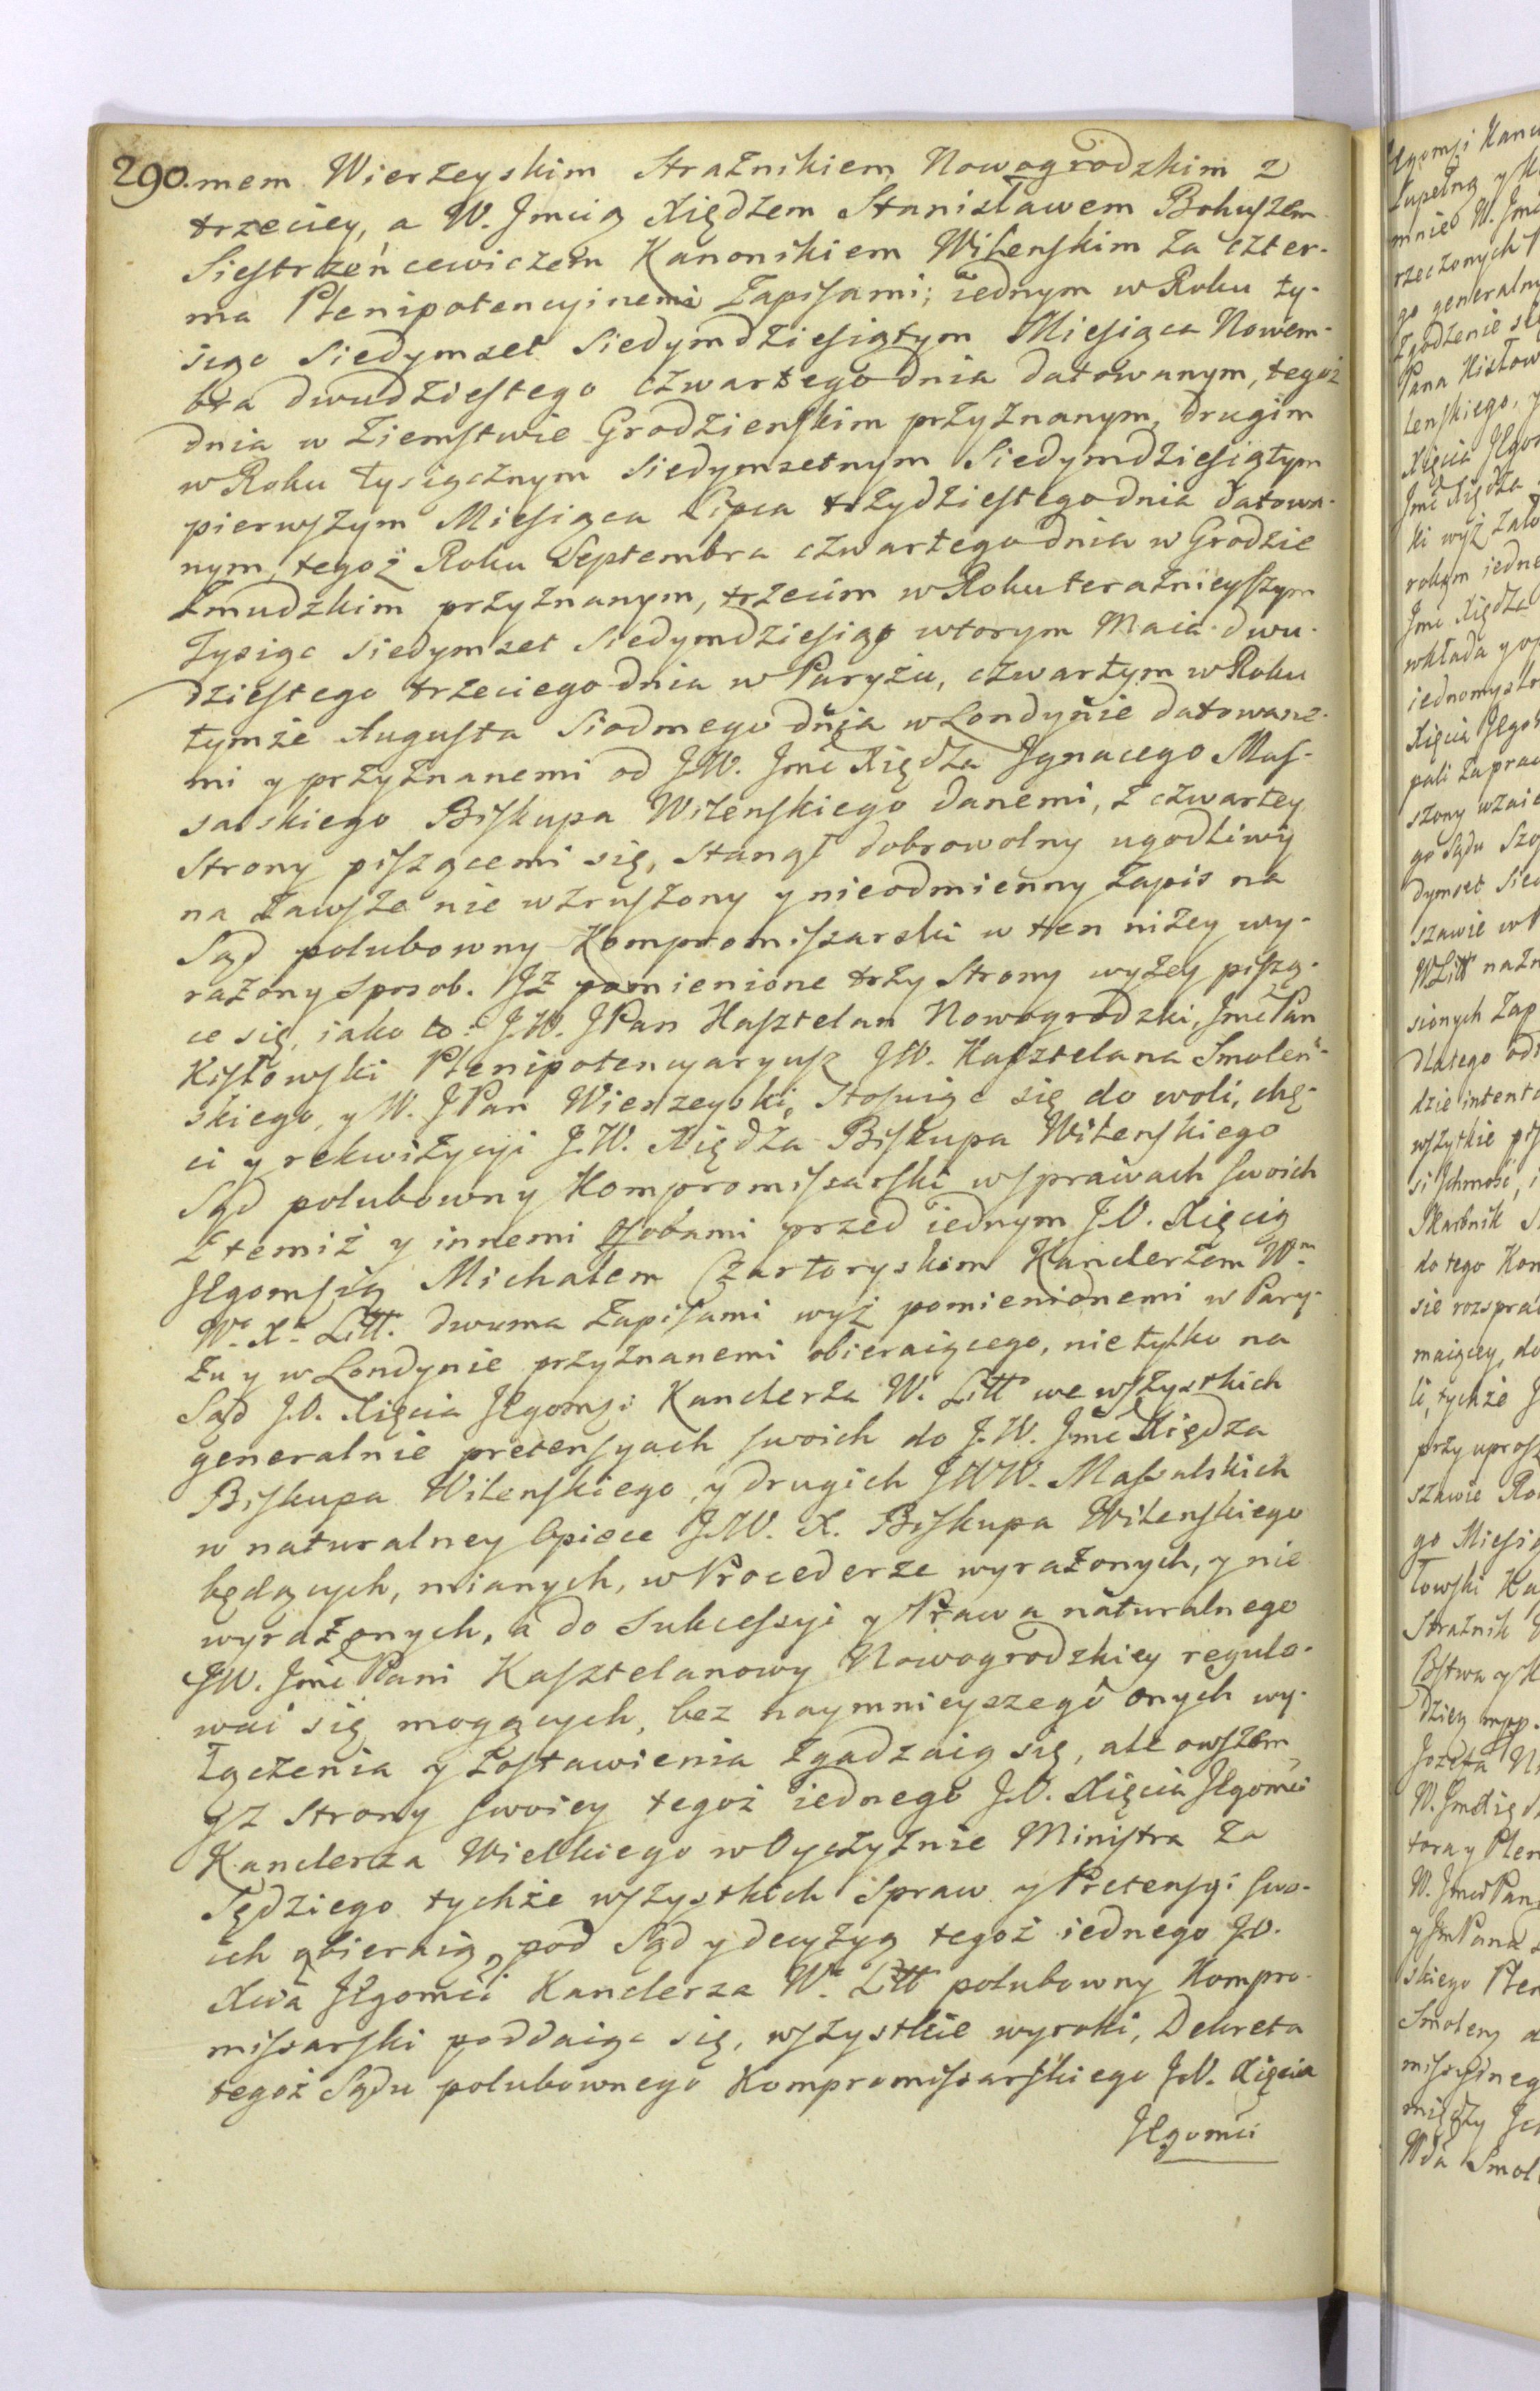 290. mem Wierzeyskim Strażnikiem Nowogrodzkim z
trzeciey, a W. Jmcią Xiędzem Stanisławem Bohuszem
Siestrzeńcewiczem Kanonikiem Wileńskim za czter-
ma Plenipotencyinemi Zapisami; iednym w Roku ty-
siąc Siedymset Siedymdziesiątym Miesiąca Nowem-
bra dwudziestego czwartego dnia datowanym, tegoż
dnia w Ziemstwie Grodzieńskim przyznanym, drugim
w Roku tysiącznym siedymsetnym Siedymdziesiątym
pierwszym Miesiąca Lipca trzydziestego dnia datowa-
nym, tegoż Roku Septembra czwartego dnia w Grodzie
Żmudzkim przyznanym, trzecim w Roku teraźnieyszym
Tysiąc Siedymset Siedymdziesiąt wtorym Maia dwu-
dziestego trzeciego dnia w Paryżu, czwartym w Roku
tymże Augusta Siodmego dnia w Londynie datowane-
mi y przyznanemi od J.W. Jmć Xiędza Ignacego Mas-
salskiego Biskupa Wileńskiego danemi, z czwartey
Strony piszącemi się, stanął dobrowolny ugodliwy
na zawsze nie wzruszony y nieodmienny Zapis na
Sąd polubowny Kompromissarski w ten niżey wy-
rażony sposob. Iż pomienione trzy Strony wyżey piszą-
ce się, iako to: J.W. JPan Kasztelan Nowogrodzki, Jmć Pan
Kisłowski Plenipotencyaryusz JW. Kasztelana Smoleń-
skiego, y W. JPan Wierzeyski, stosuiąc się do woli, chę-
ci y rekwizycyi J.W. Xiędza Biskupa Wileńskiego
Sąd polubowny Kompromissarski w sprawach swoich
z temiż y innemi Osobami przed iednym J.O. Xięcią
Jegomścią Michałem Czartoryskim Kanclerzem Wm
Wo Xa Litt. dwuma Zapisami wyż pomienionemi w Pary-
żu y w Londynie przyznanemi obieraiącego, nie tylko na
Sąd J.O. Xięcia Jegomsi Kanclerza W. Litt we wszystkich
generalnie pretensyach swoich do J.W. Jmć Xiędza
Biskupa Wileńskiego, y drugich JWW. Massalskich
w naturalney Opiece J.W. X. Biskupa Wileńskiego
będących, mianych, w Procederze wyrażonych, y nie
wyrażonych, a do Sukcessyi y Prawa naturalnego
JW. Jmć Pani Kasztelanowy Nowogrodzkiey regulo-
wać się mogących, bez naymnieyszego onych wy-
łączenia y zostawienia zgadzaią się, ale owszem
y z Strony swoiey tegoż iednego J.O. Xięcia Jegomći
Kanclerza Wielkiego w Oyczyznie Ministra za
Sędziego tychże wszystkich Spraw y Pretensyi swo-
ich obieraią, pod Sąd y decyzyą tegoż iednego J.O.
Xcia Jegomći Kanclerza Wo Litt polubowny Kompro-
missarski poddaiąc się, wszystkie wyroki, Dekreta
tegoż Sądu polubownego Kompromissarskiego J.O. Xięcia
Jegomći